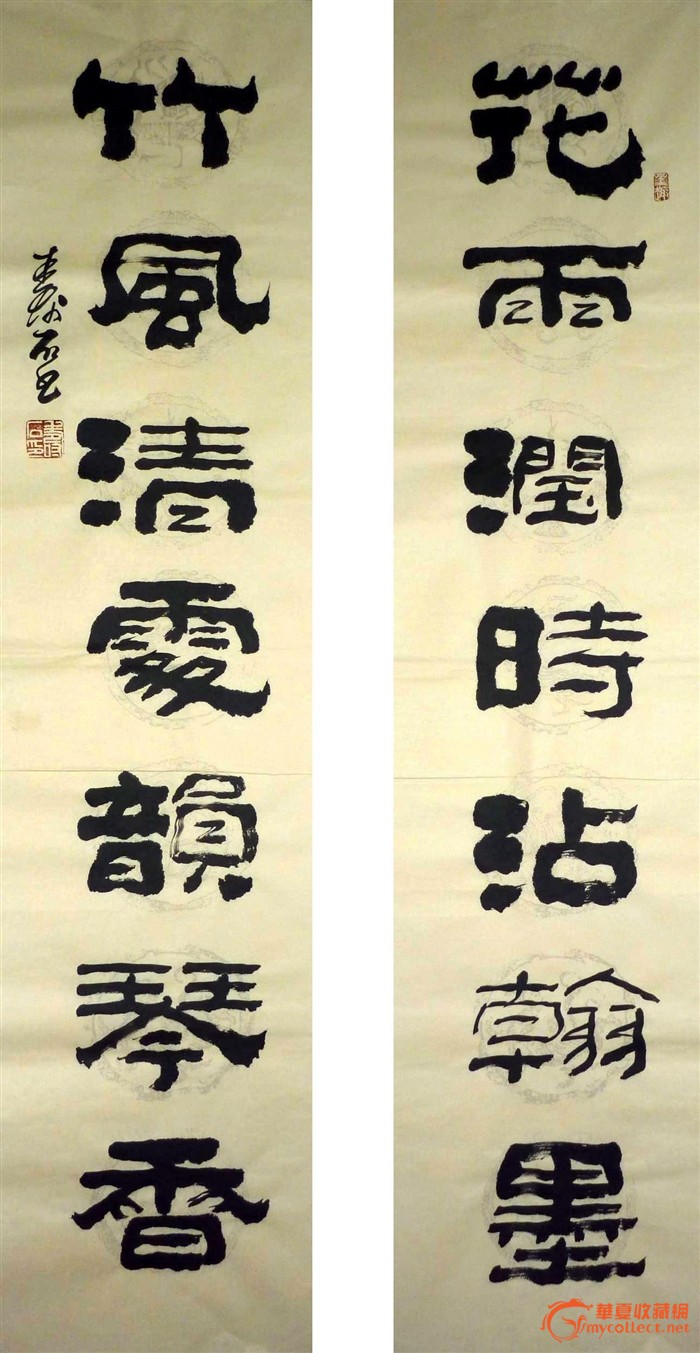 花雨潤時沾翰墨
竹風清處韻琴香
華夏收藏網
mycollect.net